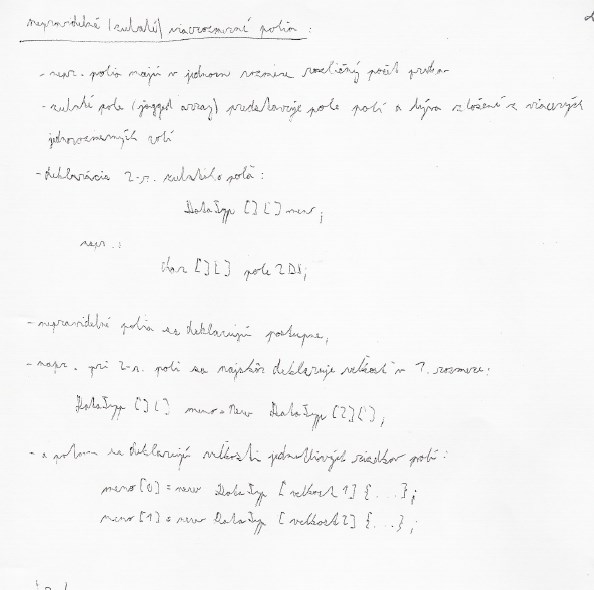 nepravidelné (zubaté) viacrozmerné polia :
- nepr. polia majú v jednom rozmere rozličný počet prvkov
- zubaté pole (jagged array) predstavuje pole polí a býva zložené z viacerých
jednorozmerných polí
- deklarácia 2-r. zubatého poľa :
DataTyp [][] meno;
napr. :
char [][] pole2DS;
- nepravidelné polia sa deklarujú postupne,
- napr. pri 2-r. poli sa najskôr deklaruje veľkosť v 1. rozmere:
DataTyp [][] meno = new DataTyp [2][];
- a potom sa deklarujú veľkosti jednotlivých riadkov polí :
meno [0] = new DataTyp [veľkosť1] {...};
meno [1] = new DataTyp [veľkosť2] {...};